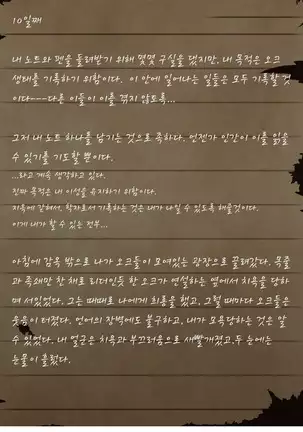 10일째
내 노트와 펜을 돌려받기 위해 몇몇 구실을 댔지만, 내 목적은 오크
생태를 기록하기 위함이다. 이 안에 일어나는 일들은 모두 기록할 것
이다---다른 이들이 이를 겪지 않도록...
그저 내 노트 하나를 남기는 것으로 족하다. 언젠가 인간이 이를 읽을
수 있기를 기도할 뿐이다.
...라고 계속 생각하고 있다.
진짜 목적은 내 이성을 유지하기 위함이다.
지옥에 갇혀서, 학자로서 기록하는 것은 내가 나일 수 있도록 해줄것이다.
이게 내가 할 수 있는 전부...
아침에 감옥 밖으로 나가 오크들이 모여있는 광장으로 끌려갔다. 목줄
과 족쇄만 찬 채로 리더인듯 한 오크가 연설하는 옆에서 치욕을 당하
며 서있었다. 그는 때때로 나에게 희롱을 했고, 그럴 때마다 오크들은
웃음이 터졌다. 언어의 장벽에도 불구하고, 내가 모욕당하는 것은 알
수 있었다. 내 얼굴은 치욕과 부끄러움으로 새빨개졌고, 두 눈에는
눈물이 흘렀다.